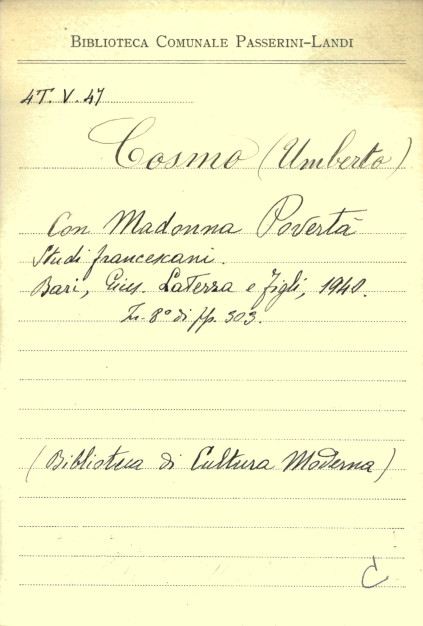 BIBLIOTECA COMUNALE PASSERINI-LANDI
4T. V. 47
Cosmo (Umberto)
Con Madonna Povertà
Studi francescani.
Bari, Gius. Laterza e figli, 1940.
In-8° di pp. 303.
(Biblioteca di Cultura Moderna)
C